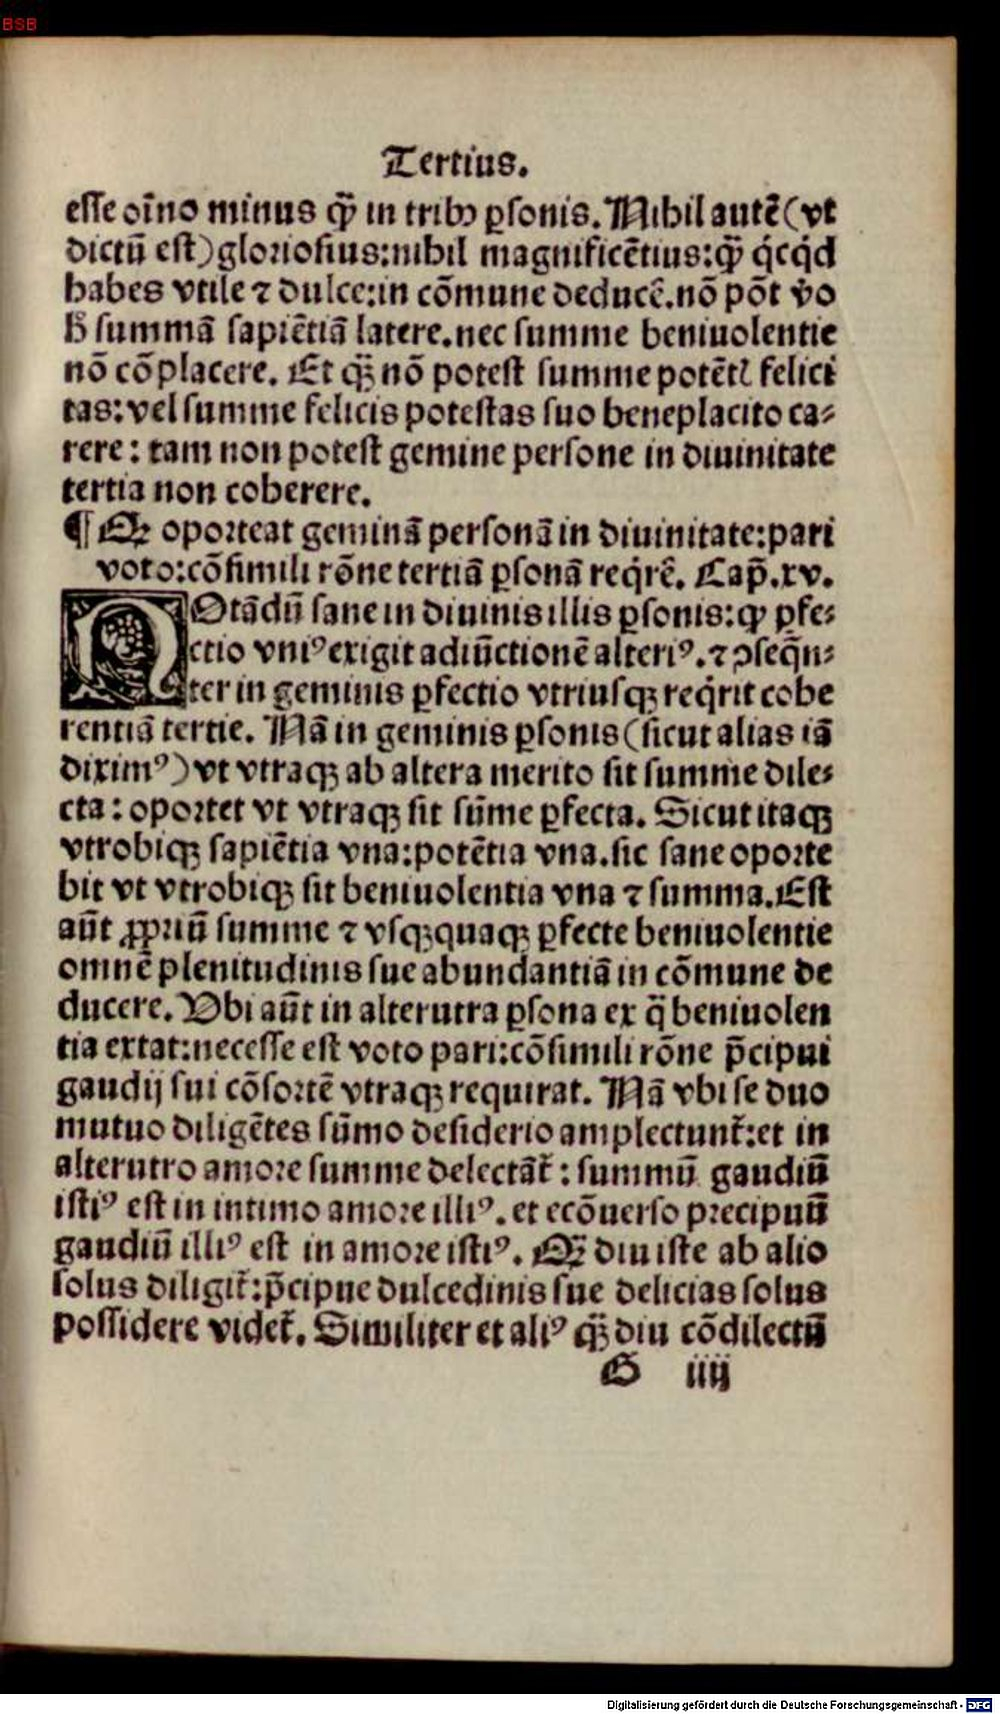 BSB
Tertius.
esse oīno minus q̃ in tribꝰ ꝑsonis. Nihil autē (vt
dictū est) gloriosius: nihil magnificētius: q̃ qͥcqͥd
habes vtile ⁊ dulce: in cōmune deducē. nō pōt v̊o
h̄ summā sapiētiā latere. nec summe beniuolentie
nō cōplacere. Et qͣꝫ nō potest summe potētꝭ felici
tas: vel summe felicis potestas suo beneplacito ca⸗
rere: tam non potest gemine persone in diuinitate
tertia non coherere.
¶ Qꝫ oporteat geminā personā in diuinitate: pari
voto: cōsimili rōne tertiā ꝑsonā reqͥrē. Cap̄. xv.
NOtādū sane in diuinis illis ꝑsonis: ꝙ ꝑfe⸗
ctio vniꝰ exigit adiūctionē alteriꝰ. ⁊ ꝯseq̄n⸗
ter in geminis ꝑfectio vtriusqꝫ reqͥrit cohe
rentiā tertie. Nā in geminis ꝑsonis (sicut alias iā
diximꝰ) vt vtraqꝫ ab altera merito sit summe dile⸗
cta: oportet vt vtraqꝫ sit sūme ꝑfecta. Sicut itaqꝫ
vtrobiqꝫ sapiētia vna: potētia vna. sic sane oporte
bit vt vtrobiqꝫ sit beniuolentia vna ⁊ summa. Est
aūt ꝓpriū summe ⁊ vsqꝫquaqꝫ ꝑfecte beniuolentie
omnē plenitudinis sue abundantiā in cōmune de
ducere. Vbi aūt in alterutra ꝑsona ex q̄ beniuolen
tia extat: necesse est voto pari: cōsimili rōne p̄cipui
gaudij sui cōsortē vtraqꝫ requirat. Nā vbi se duo
mutuo diligētes sūmo desiderio amplectunt̄: et in
alterutro amore summe delectāt̄: summū gaudiū
istiꝰ est in intimo amore illiꝰ. et ecōuerso precipuū
gaudiū illiꝰ est in amore istiꝰ. Qꝫ diu iste ab alio
solus diligit̄: p̄cipue dulcedinis sue delicias solus
possidere videt̄. Similiter et aliꝰ qͣꝫ diu cōdilectū
G iiij
Digitalisierung gefördert durch die Deutsche Forschungsgemeinschaft - DFG